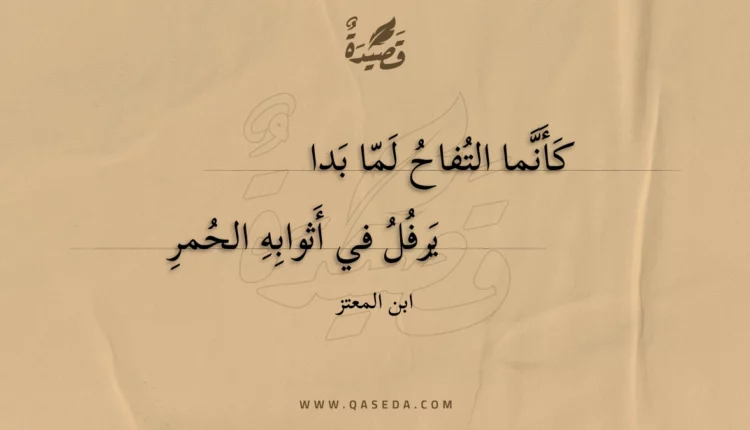 قَصِيْدَةٌ
كَأَنَّما التُفاحُ لَمّا بَدا
يَرفُلُ في أَثوابِهِ الحُمرِ
ابن المعتز
WWW.QASEDA.COM